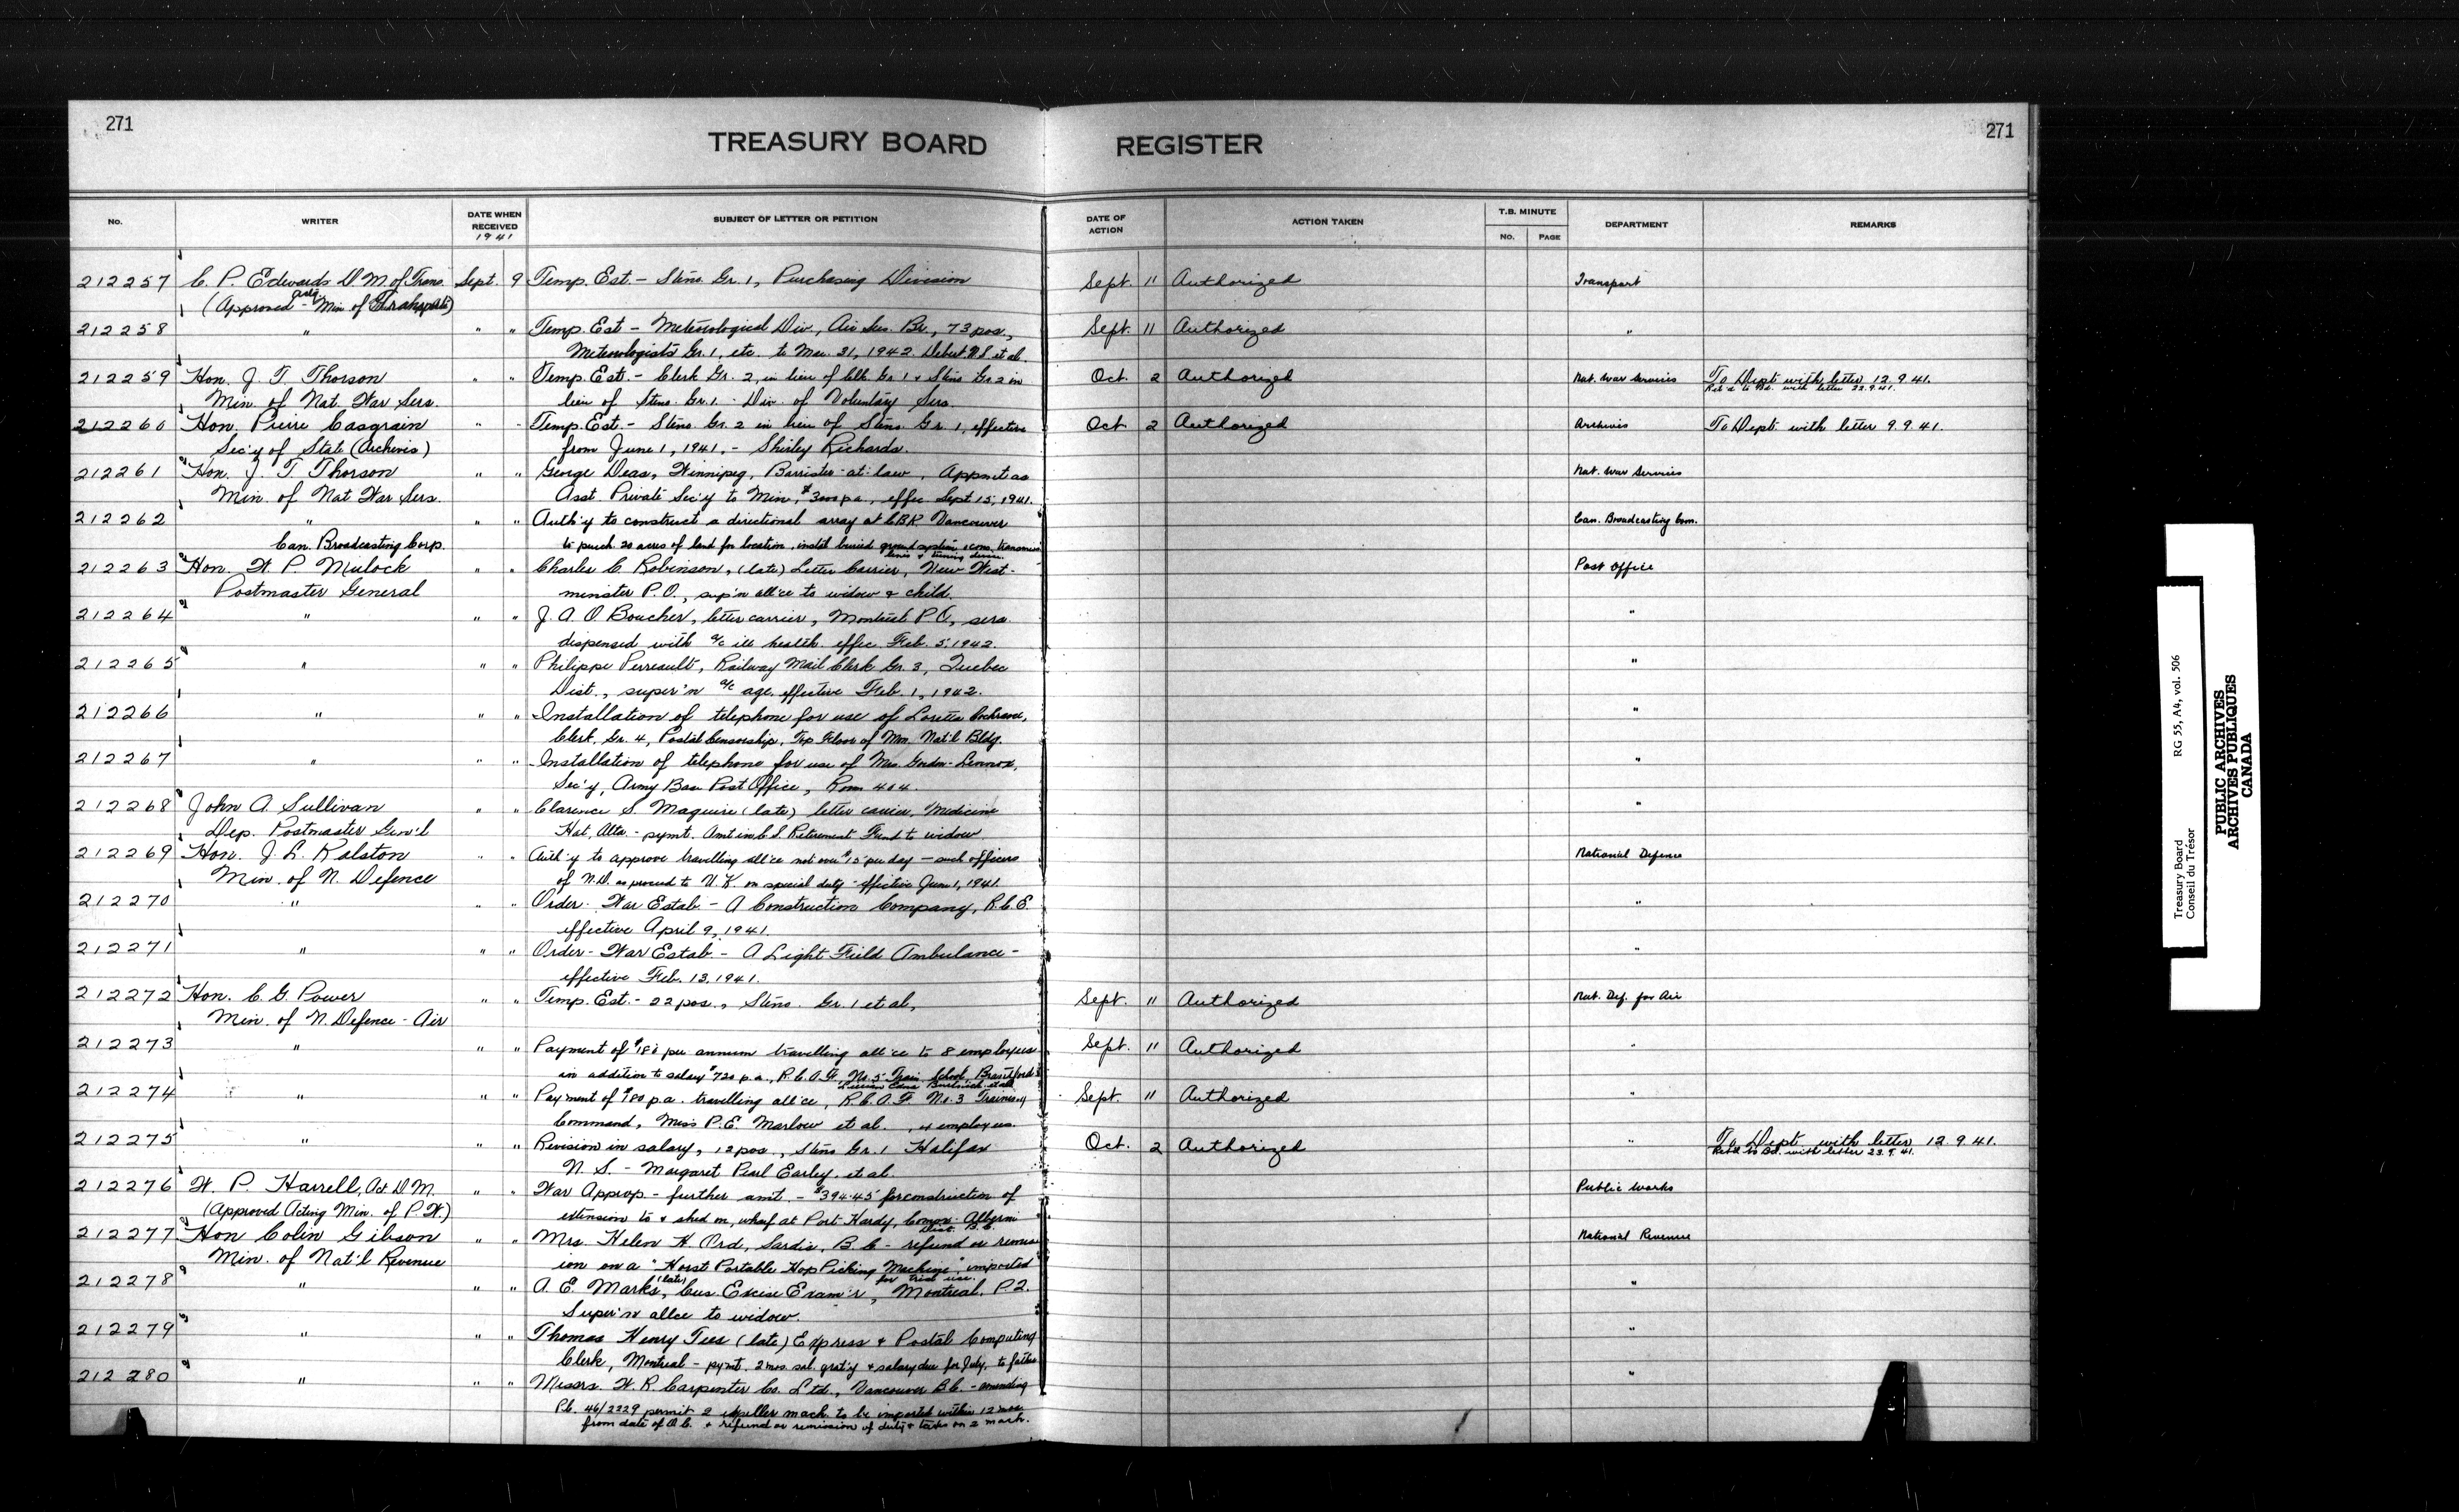 271
271
TREASURY BOARD REGISTER
No. WRITER DATE WHEN RECEIVED 1941 SUBJECT OF LETTER OR PETITION DATE OF ACTION ACTION TAKEN T.B. MINUTE No. PAGE DEPARTMENT REMARKS
212257 C. P. Edwards D M. of Trans. Sept. 9 Temp. Est. - Steno. Gr. 1, Purchasing Division Sept. 11 Authorized Transport
(Approved actg. Min of Transport)
212258 " " " Temp. Est - Meteorological Div, Air Ser. Br., 73 pos., Sept. 11 Authorized "
Meteorologists Gr. 1, etc. to Mar. 31, 1942. Debert N.S et al.
212259 Hon. J. T. Thorson " " Temp. Est. - Clerk Gr. 2, in lieu of Clk Gr 1 + Steno Gr 2 in Oct. 2 Authorized Nat. War Services To Dept with letter 12.9.41.
Min. of Nat. War Sers. lieu of Steno. Gr. 1. Div. of Voluntary Sers. Ret'd to Bd. with letter 22.9.41.
212260 Hon. Pierre Casgrain " " Temp. Est. - Steno Gr. 2 in lieu of Steno Gr. 1, effective Oct 2 Authorized Archives To Dept with letter 9.9.41.
Sec'y of State (Archives) from June 1, 1941, - Shirley Richards.
212261 Hon. J. T. Thorson " " George Deas, Winnipeg, Barrister-at-law, Appmt as Nat. War Services
Min. of Nat War Sers. Asst. Private Sec'y to Min, $3000 p.a., effec. Sept 15, 1941.
212262 " " " Auth'y to construct a directional array at CBR Vancouver Can. Broadcasting Com.
Can. Broadcasting Corp. to purch. 20 acres of land for location, instal buried ground system, cons. transmis
lines + tuning
212263 Hon. W. P. Mulock " " Charles C. Robinson, (late) Letter Carrier, New West- Post Office
Postmaster General minster P.O., sup'n all'ce to widow & child.
212264 " " " J. A. O Boucher, letter carrier, Montreal P.O, sers. "
dispensed with a/c ill health effec Feb. 5, 1942.
212265 " " " Philippe Perreault, Railway Mail Clerk Gr. 3, Quebec "
Dist., super'n a/c age, effective Feb. 1, 1942.
212266 " " " Installation of telephone for use of Loretta Cochrane, "
Clerk, Gr. 4, Postal Censorship, Top Floor of Mon. Nat'l Bldg.
212267 " " " Installation of telephone for use of Mrs. Gordon-Lennox, "
Sec'y, Army Base Post Office, Room 404.
212268 John A. Sullivan " " Clarence S. Maguire (late) letter carrier, Medicine "
Dep. Postmaster Gen'l Hat, Alta. - pymt. Amt in C.S. Retirement Fund to widow
212269 Hon. J. L. Ralston " " Auth'y to approve travelling all'ce not over $15 per day - such officers National Defence
Min. of N. Defence of N.D. as proceed to U.K. on special duty - effective June 1, 1941.
212270 " " " Order - War Estab. - A Construction Company, R.C.E. "
effective April 9, 1941.
212271 " " " Order - War Estab. - A Light Field Ambulance - "
effective Feb. 13, 1941.
212272 Hon. C. G. Power " " Temp. Est. - 22 pos., Steno. Gr. 1 et al, Sept. 11 Authorized Nat. Def. for Air
Min. of N. Defence - Air
212273 " " " Payment of $180 per annum travelling all'ce to 8 employees Sept. 11 Authorized "
in addition to salary $720 p.a., R.C.A.F. No. 5 Train. School, Brantford
212274 " " " Payment of $180 p.a. travelling all'ce, R.C.A.F. No. 3 Training Sept. 11 Authorized "
Command, Miss P.E. Marlow et al. , 4 employees.
212275 " " " Revision in salary, 12 pos., Steno Gr. 1 Halifax Oct. 2 Authorized " To Dept with letter 12.9.41.
N. S. - Margaret Pearl Earley, et al. Ret'd to Bd. with letter 23.9.41.
212276 W. P. Harrell, Act D M. " " War Approp - further amt. - $394.45 for construction of Public Works
(Approved Acting Min. of P.W.) extension to & shed on, wharf at Port Hardy, Comox-Alberni
Dist. B.C.
212277 Hon Colin Gibson " " Mrs. Helen H. Ord, Sardis, B.C - refund or remiss National Revenue
Min. of Nat'l Revenue ion on a "Horst Portable Hop Picking Machine", imported
for trial use.
212278 " " " A. E. Marks, (late) Cus. Excise Exam'r, Montreal, P.Q. "
Super'n allce to widow.
212279 " " " Thomas Henry Tees (late) Express & Postal Computing "
Clerk, Montreal - pymt. 2 mos. sal. grat'y + salary due for July, to father
212280 " " " Messrs. W. R. Carpenter Co. Ltd., Vancouver B.C. - amending "
P.C. 46/2229 permit 2 expeller mach. to be imported within 12 mos
from date of O.C. + refund or remission of duty + taxes on 2 mach.
Treasury Board RG 55, A4, vol. 506
Conseil du Trésor
PUBLIC ARCHIVES
ARCHIVES PUBLIQUES
CANADA